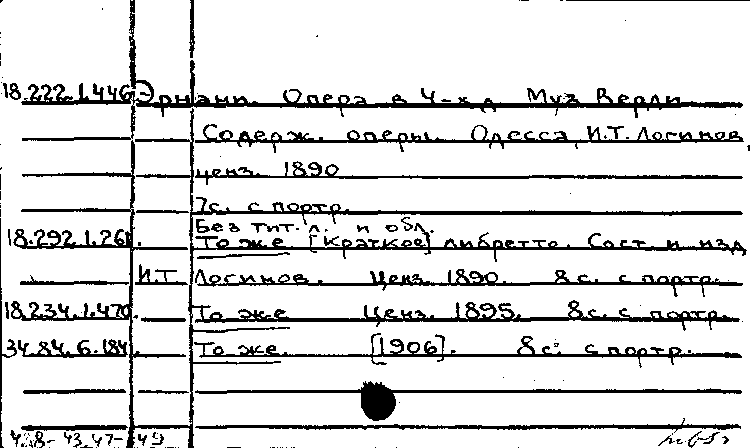 18.222.1.446 Эрнани. Опера в 4-х д. Муз. Верди
Содерж. оперы. Одесса, И.Т. Логинов,
ценз. 1890
7с. с портр.
Без тит. л. и обл.
18.292.1.261. То же [Краткое] либретто. Сост. и изд.
И.Т. Логинов. Ценз. 1890. 8с. с портр.
18.234.1.470. То же Ценз. 1895. 8с. с портр.
34.84.6.184. То же. [1906]. 8с. с портр.